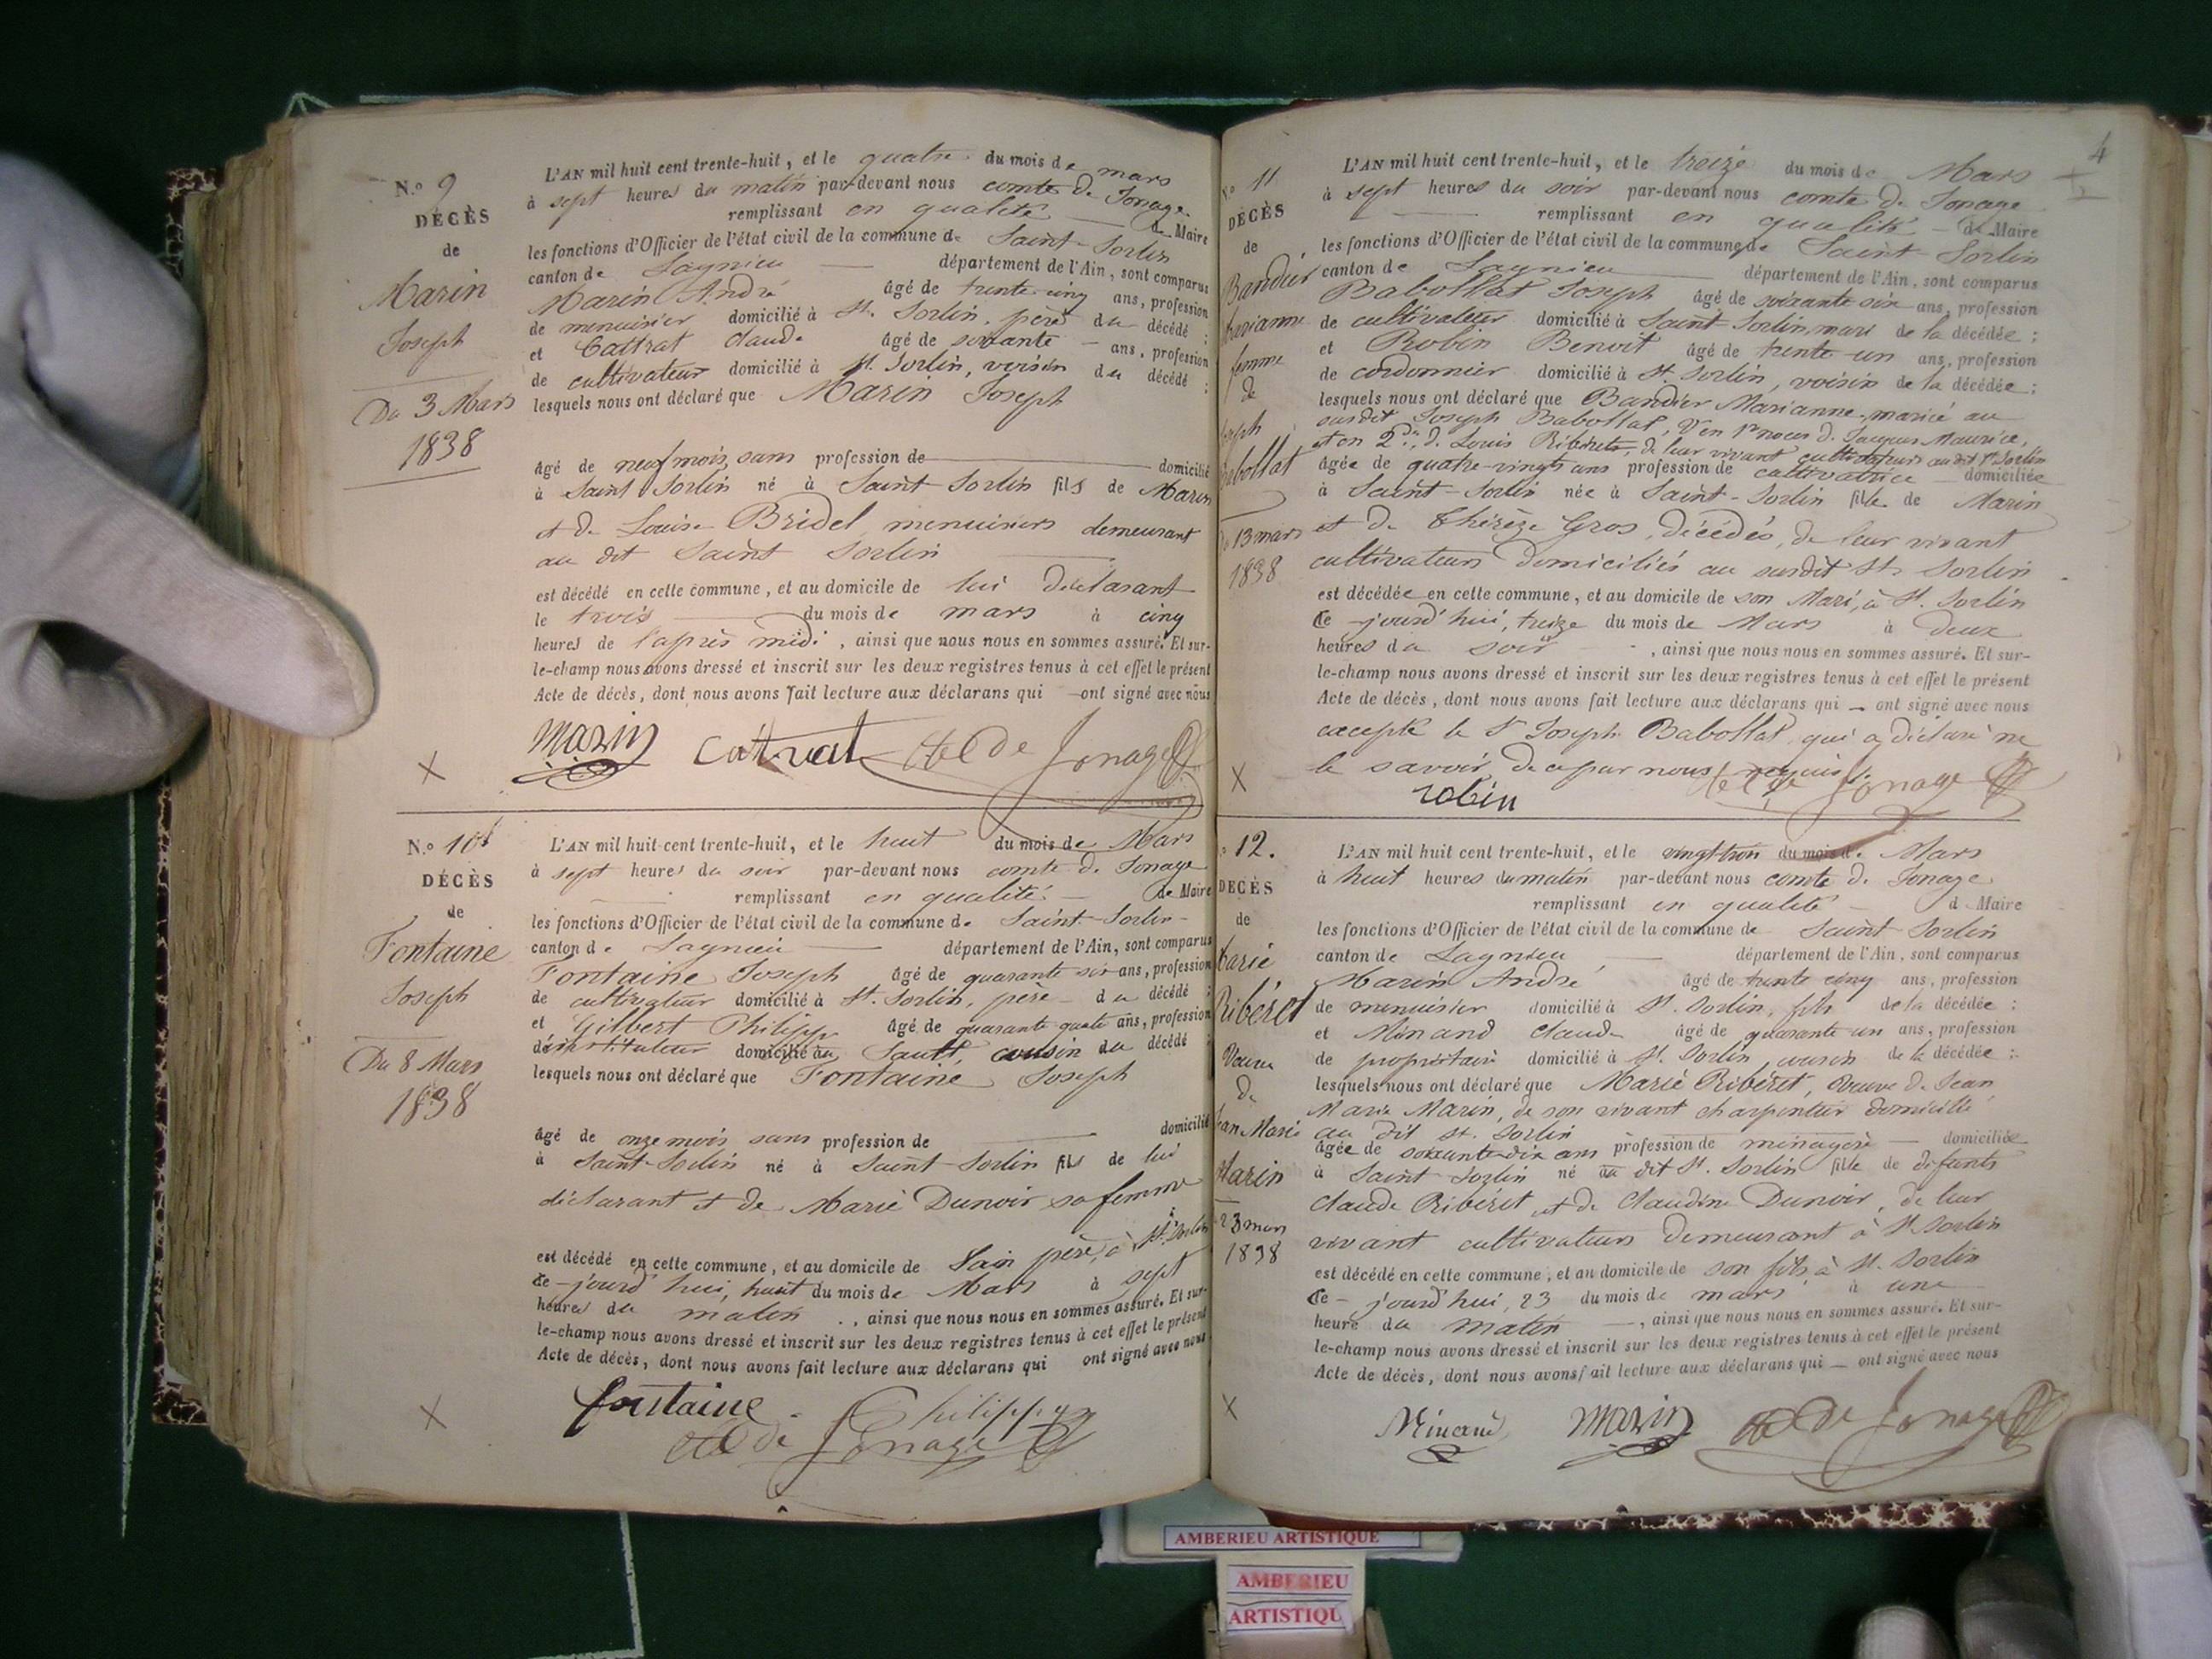 N.º 9
DÉCÈS
de
Marin
Joseph
Du 3 Mars
1838
L'AN mil huit cent trente-huit, et le quatre du mois de mars
à sept heures du matin par-devant nous comte de Jonage
remplissant en qualité de Maire
les fonctions d'Officier de l'état civil de la commune de Saint-Sorlin
canton de Lagnieu département de l'Ain, sont comparus
Marin André âgé de trente cinq ans, profession
de menuisier domicilié à St. Sorlin, père du décédé ;
et Cattrat Claude âgé de soixante ans, profession
de cultivateur domicilié à St. Sorlin, voisin du décédé ;
lesquels nous ont déclaré que Marin Joseph
âgé de neuf mois, sans profession de domicilié
à Saint Sorlin né à Saint-Sorlin fils de Marin
et de Louise Bridel menuisiers demeurant
au dit Saint Sorlin
est décédé en cette commune, et au domicile de lui déclarant
le trois du mois de mars à cinq
heures de l'après midi, ainsi que nous nous en sommes assuré. Et sur-
le-champ nous avons dressé et inscrit sur les deux registres tenus à cet effet le présent
Acte de décès, dont nous avons fait lecture aux déclarans qui ont signé avec nous
Marin Cattrat Cte de Jonage
N.º 10
DÉCÈS
de
Fontaine
Joseph
Du 8 Mars
1838
L'AN mil huit cent trente-huit, et le huit du mois de Mars
à sept heures du soir par-devant nous comte de Jonage
remplissant en qualité de Maire
les fonctions d'Officier de l'état civil de la commune de Saint-Sorlin
canton de Lagnieu département de l'Ain, sont comparus
Fontaine Joseph âgé de quarante six ans, profession
de cultivateur domicilié à St. Sorlin, père du décédé ;
et Gilbert Philippe âgé de quarante quatre ans, profession
d'instituteur domicilié au Sault, cousin du décédé ;
lesquels nous ont déclaré que Fontaine Joseph
âgé de onze mois sans profession de domicilié
à Saint-Sorlin né à Saint-Sorlin fils de lui
déclarant et de Marie Dunoir sa femme
est décédé en cette commune, et au domicile de son père, à St. Sorlin
ce-jourd'hui, huit du mois de Mars à sept
heures du matin, ainsi que nous nous en sommes assuré. Et sur-
le-champ nous avons dressé et inscrit sur les deux registres tenus à cet effet le présent
Acte de décès, dont nous avons fait lecture aux déclarans qui ont signé avec nous
fontaine Philippe
Cte de Jonage
4
11
DÉCÈS
de
Bandier
Marianne
femme
de
Joseph
Babollat
13 mars
1838
L'AN mil huit cent trente-huit, et le treize du mois de Mars
à sept heures du soir par-devant nous comte de Jonage
remplissant en qualité de Maire
les fonctions d'Officier de l'état civil de la commune de Saint-Sorlin
canton de Lagnieu département de l'Ain, sont comparus
Babollat Joseph âgé de soixante six ans, profession
de cultivateur domicilié à Saint Sorlin, mari de la décédée ;
et Robin Benoit âgé de trente un ans, profession
de cordonnier domicilié à St. Sorlin, voisin de la décédée ;
lesquels nous ont déclaré que Bandier Marianne, mariée au
susdit Joseph Babollat, en 1res noces de Jacques Maurice,
et en 2des de Louis Ribéret, de leur vivant cultivateurs au dit St Sorlin
âgée de quatre-vingts ans profession de cultivatrice domiciliée
à Saint-Sorlin née à Saint-Sorlin fille de Marin
et de Thérèze Gros, décédés, de leur vivant
cultivateurs domiciliés au susdit St. Sorlin
est décédée en cette commune, et au domicile de son Mari, à St. Sorlin
ce-jourd'hui, treize du mois de Mars à deux
heures du soir, ainsi que nous nous en sommes assuré. Et sur-
le-champ nous avons dressé et inscrit sur les deux registres tenus à cet effet le présent
Acte de décès, dont nous avons fait lecture aux déclarans qui ont signé avec nous
excepté le Sr Joseph Babollat, qui a déclaré ne
le savoir de ce par nous requis.
robin Cte de Jonage
12.
DÉCÈS
de
Marie
Ribéret
Veuve
de
Jean Marie
Marin
23 mars
1838
L'AN mil huit cent trente-huit, et le vingt trois du mois de Mars
à huit heures du matin par-devant nous comte de Jonage
remplissant en qualité d Maire
les fonctions d'Officier de l'état civil de la commune de Saint Sorlin
canton de Lagnieu département de l'Ain, sont comparus
Marin André âgé de trente cinq ans, profession
de menuisier domicilié à St. Sorlin, fils de la décédée ;
et Minand Claude âgé de quarante un ans, profession
de propriétaire domicilié à St. Sorlin, cousin de la décédée ;
lesquels nous ont déclaré que Marie Ribéret, veuve de Jean
Marie Marin, de son vivant charpentier domicilié
au dit St. Sorlin
âgée de soixante-dix ans profession de ménagère domiciliée
à Saint-Sorlin né au dit St. Sorlin fille de défunts
Claude Ribéret et de Claudine Dunoir, de leur
vivant cultivateurs demeurant à St. Sorlin
est décédé en cette commune, et au domicile de son fils, à St. Sorlin
ce-jourd'hui, 23 du mois de mars à une
heure du matin, ainsi que nous nous en sommes assuré. Et sur-
le-champ nous avons dressé et inscrit sur les deux registres tenus à cet effet le présent
Acte de décès, dont nous avons fait lecture aux déclarans qui ont signé avec nous
Minand Marin Cte de Jonage
AMBERIEU ARTISTIQUE
AMBERIEU
ARTISTIQU